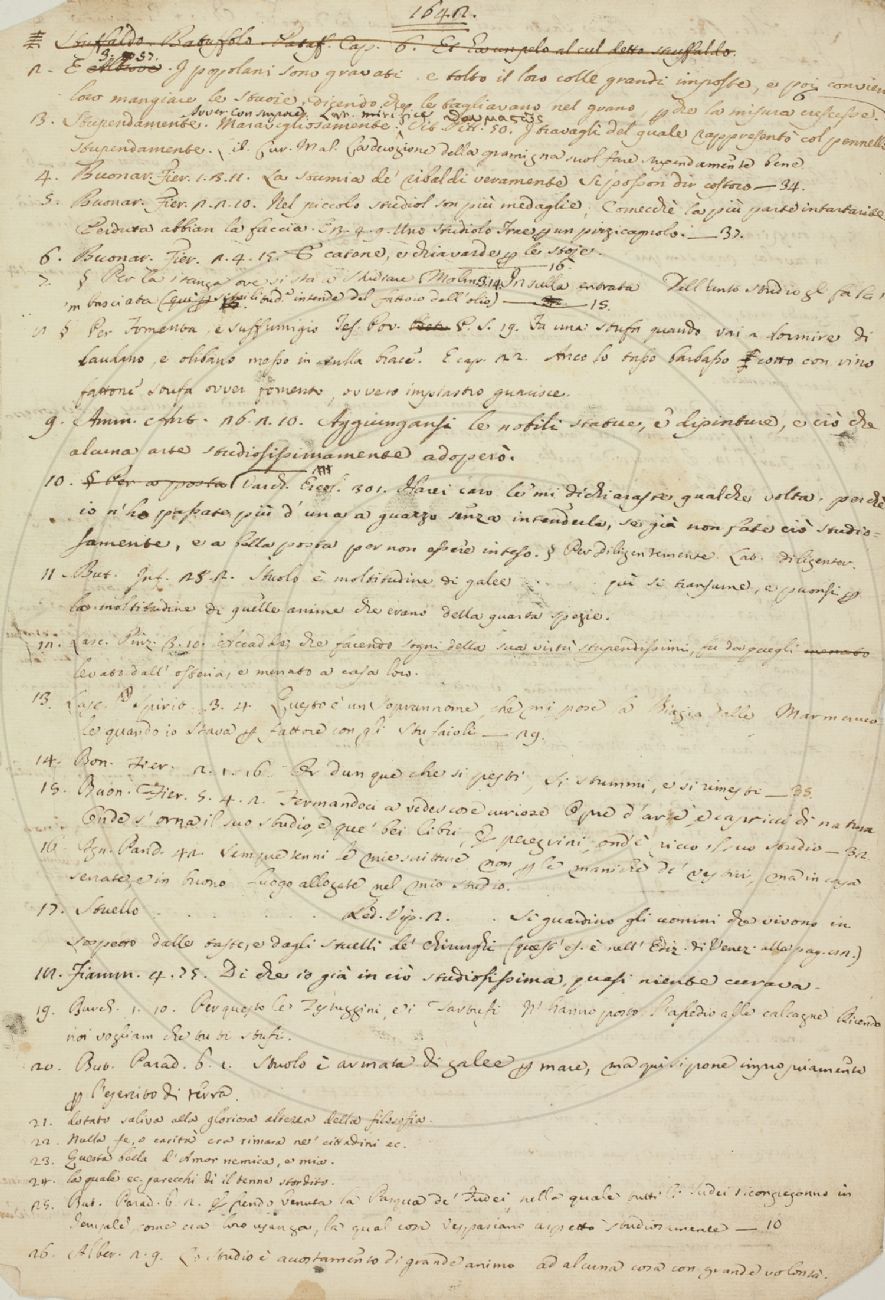 1642.
Stuffaldo. Batuffolo. Pataff. Cap. 6. Et Ha un pelo al cul detto stuffaldo.
2. E I popolani sono gravati, e tolto il loro colle grandi imposte, e poi convien
loro mangiare le stuoie, dicendo, che le tagliavano nel grano, perchè la misura crescesse. 6
3. Stupendamente. Maravigliosamente. Lat. mirificè Cit. 50. I travagli del quale rappresentò col pennello
stupendamente. Cur. Mal. La devozione della gramigna suol fare stupendamente bene
4. Buonar. Fier. 1. 3. 11. La scumia de' ribaldi veramente Si posson dir costoro — 34.
5. Buonar. Fier. 2. 2. 10. Nel piccolo studiol son più medaglie; Comecchè la più parte intartarite
Perduta abbian la faccia. E 3. 4. 9. Uno studiolo Trae per un pizzicagnolo. — 37.
6. Buonar. Fier. 2. 4. 15. E catone, e chiavarde per le stoje.
7. § Per la stanza ove si sta a studiare Malm. In sulla entrata Dell'unto studio gli fa la
'mbasciata (qui per similitud. intende del fattoio dell'olio) — 15.
§ Per Fomenta, e suffumigio Tes. Pov. P. S. 19. Fa una stufa quando vai a dormire di
laudano, e olibano messo in sulla brace. E cap. 22. Anco lo tasso barbasso cotto con vino
fattone stufa ovver fomento, ovvero impiastro guarisce.
9. Amm. Ant. 26. 2. 10. Aggiungansi le nobili statue, e dipinture, e ciò che
alcuna arte studiosissimamente adoperò.
10. § Per a posta Varch. Ercol. 301. Harei caro le mi dichiaraste qualche volta, perchè
io n'ho passate più d'una a guazzo senza intenderle, se già non fate ciò studio=
samente, e a bella posta per non essere inteso. § Per Diligentemente Lat. diligenter.
11. But. Inf. 28. 2. Stuolo è moltitudine di galee . . . . qui si transume, e ponsi per
la moltitudine di quelle anime che erano della quarta spezie.
12. Lasc. Pinz. 3. 10. che facendo sogni della sua virtù stupendissimi, fu da quegli menato
levato dall'osteria, e menato a casa loro.
13. Lasc. Spirit. 3. 4. Questo è un soprannome, che mi pose la Biagia dalle Marmeruc
le quando io stava per fattore con gli stufaioli — 29.
14. Bon. Fier. 2. 1. 16. Per dunque che si pesti, si stummi, e si rimesti — 33
15. Buon. Fier. 5. 4. 2. Fermandoci a veder cose curiose Opre d'arte, e capricci di natura
Onde s'orna il suo studio, e que' bei libri, E peregrini, ond'è ricco il suo studio — 32.
16. Gn. Pand. 42. Sempre tenni le mie scritture non per le maniche de' vestiri, ma in casa
serrate, e in buono luogo allogate nel mio studio.
17. Stuello . . . . . Led. Vip. 2. . . Si guardino gli uomini che vivono in
sospetto dalle taste, e dagli stuelli de' chirurghi (quest' es. è nell' Ediz. di Venez. alla pag. 212.)
18. Fiamm. 4. 25. Di che io già in ciò studiosissima, quasi niente curava.
19. Burch. 1. 10. Per questo le Testuggini, e i Tartufi N'hanno posto l'assedio alle calcagne Dicendo
noi vogliam che tu ti stufi.
20. But. Parad. 6. 1. Stuolo è armata di galee per mare, ma qui si pone impropiamente
per l'esercito di terra.
21. Lotato saliva alla gloriosa altezza della filosofia.
22. Nulla fe, o carità era rimasa ne' cittadini ec.
23. Questa bella d'Amor nemica, e mia.
24. la quale ec. parecchi dì il tenne stordito.
25. But. Parad. 6. 2. Essendo venuta la Pasqua de' Judei, nella quale tutti li Judei si congregonno in
Jerusalè, come era loro usanza, la qual cosa Vespasiano aspetto studiosamente — 10
26. Alber. 2. 9. Lo Studio è accostamento di grande animo ad alcuna cosa con grande volontà.